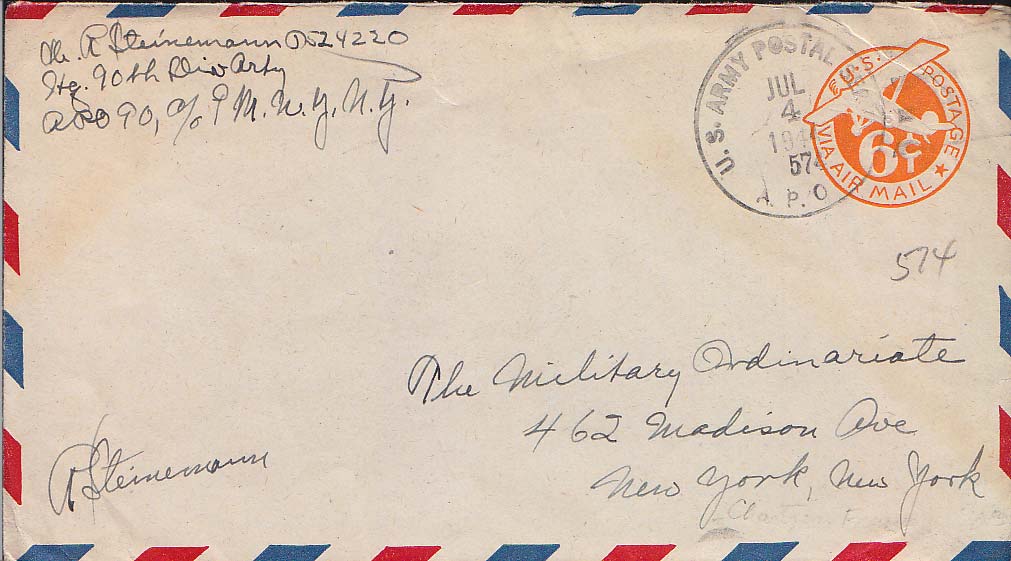 Ch. R Steinemann O524220
Hq. 90th Div Arty
APO 90, c/o P M. N.Y., N.Y.
U.S. ARMY POSTAL
JUL
4
194
574
A. P. O
U.S. POSTAGE
6¢
VIA AIR MAIL
574
The Military Ordinariate
462 Madison Ave
New York, New York
R Steinemann